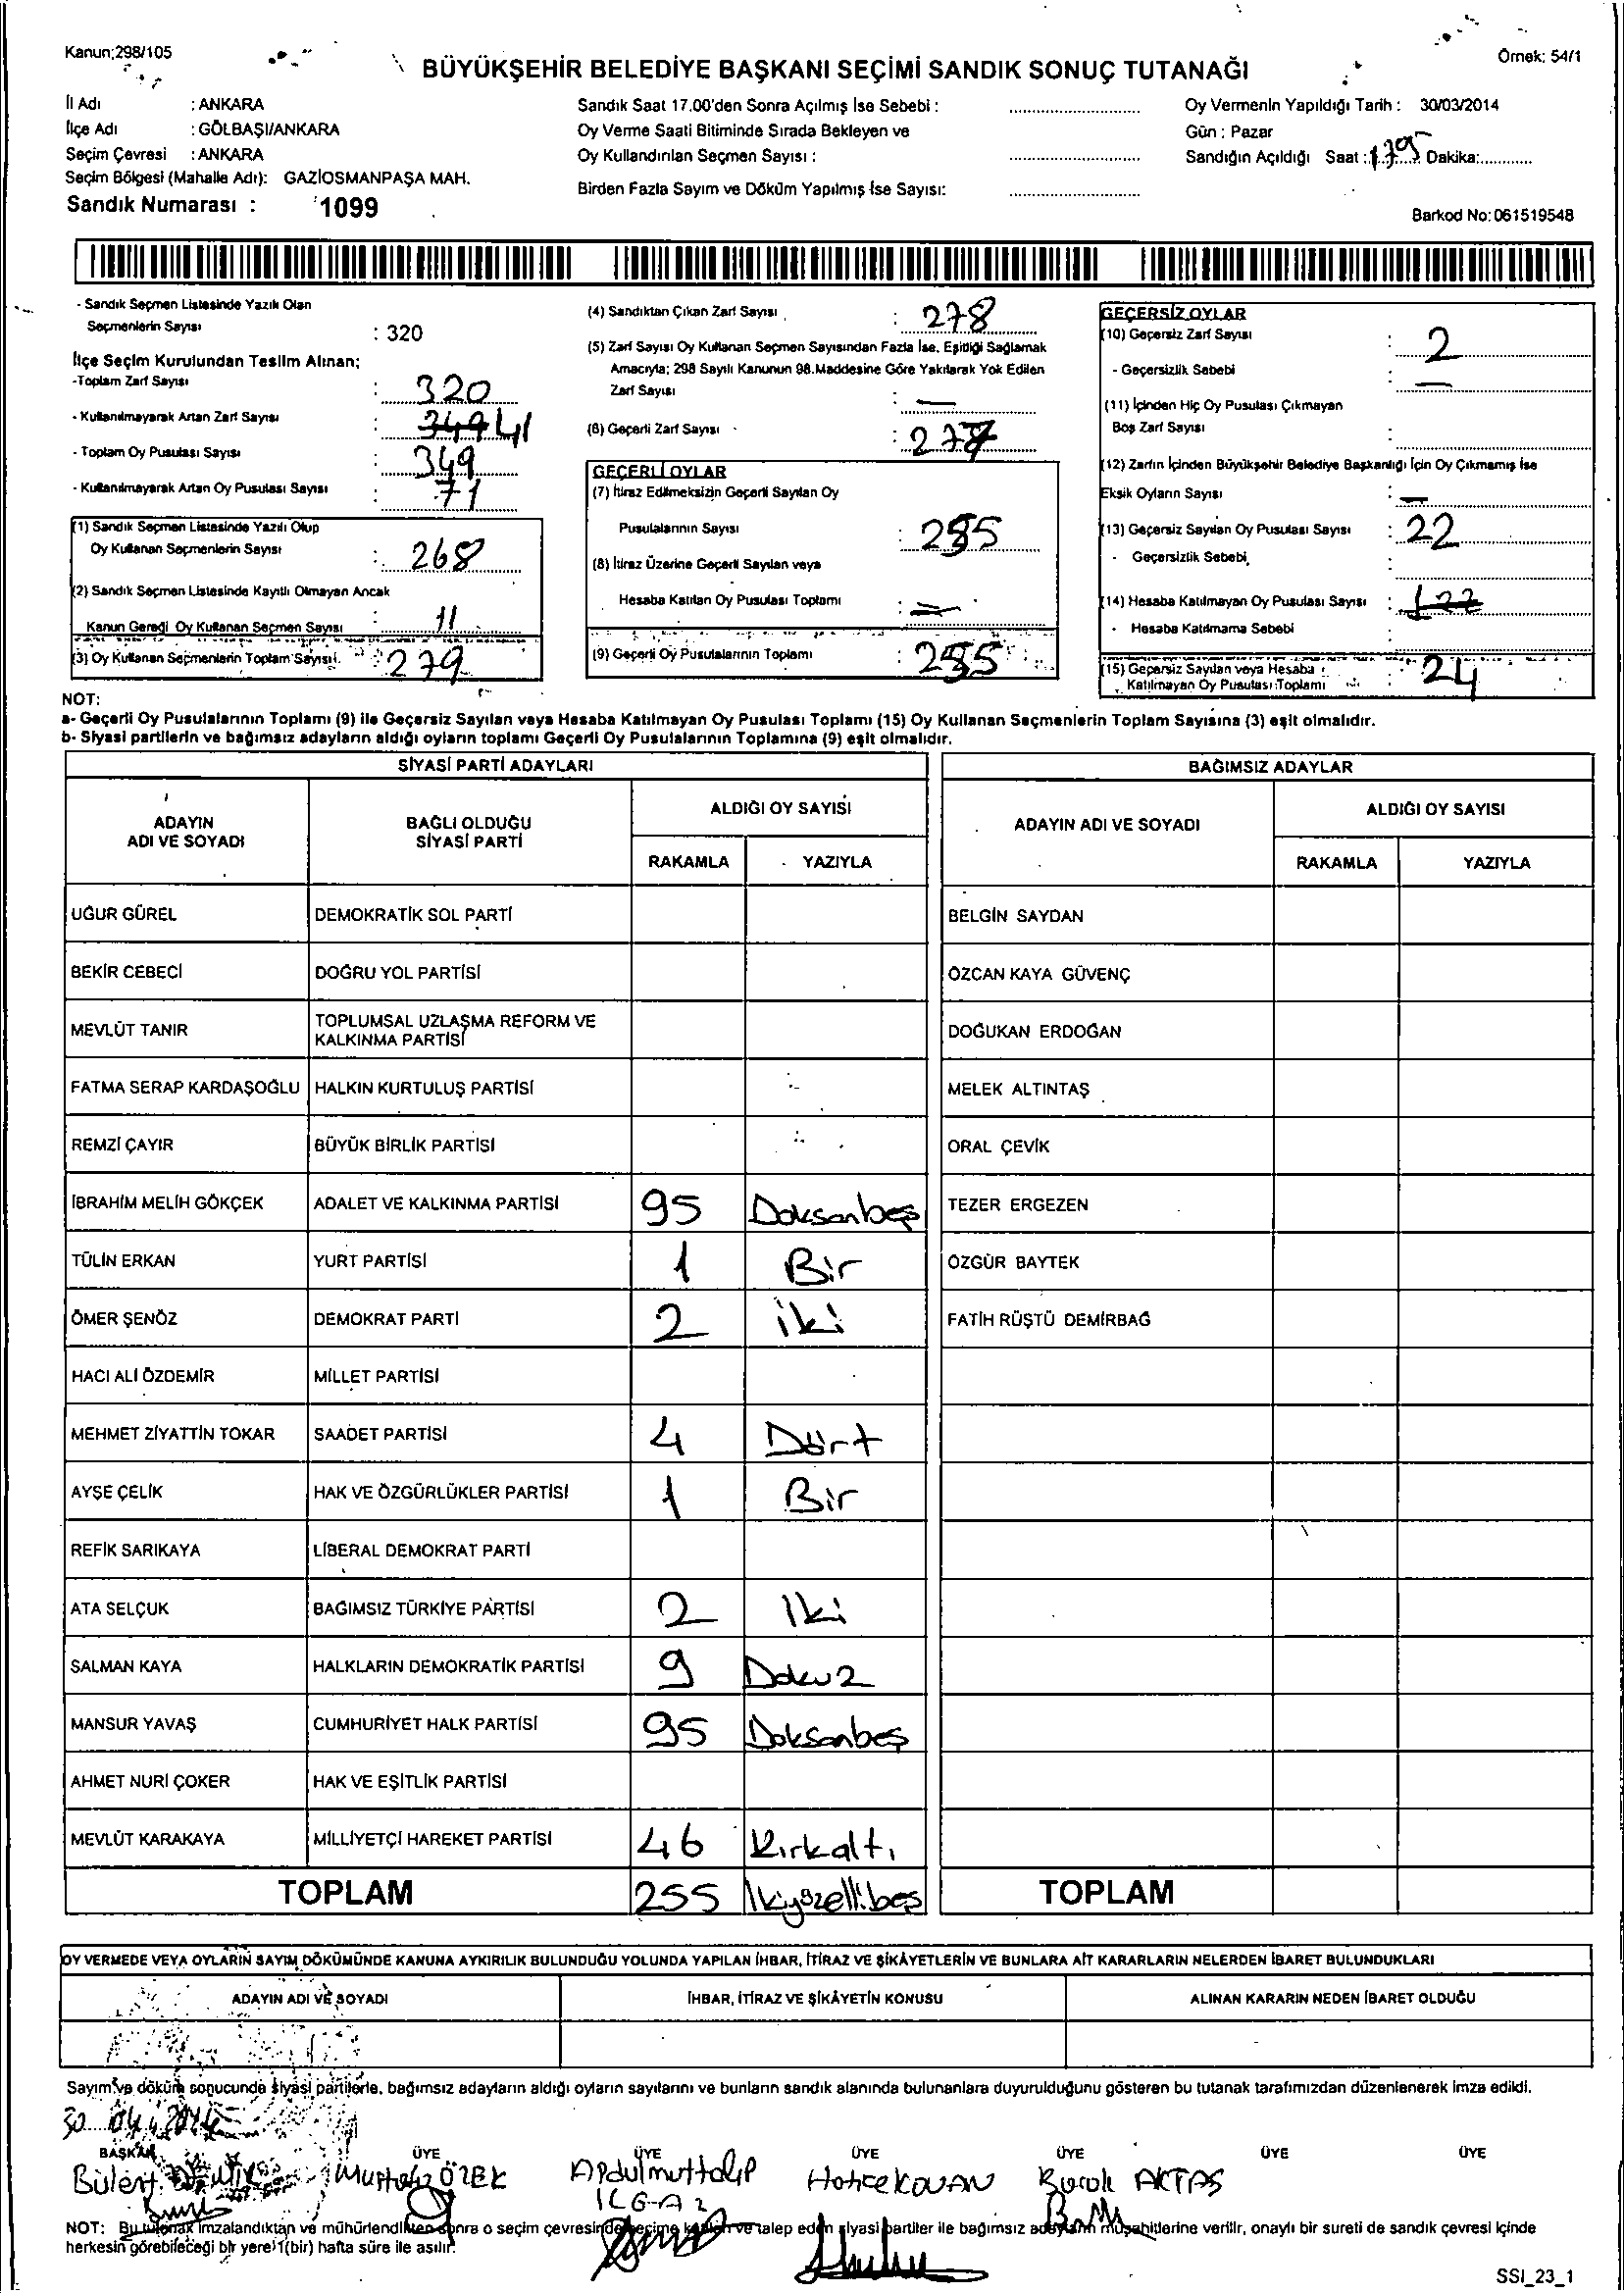 Kanun;298/105
Örnek: 54/1
BÜYÜKŞEHİR BELEDİYE BAŞKANI SEÇİMİ SANDIK SONUÇ TUTANAĞI
İl Adı : ANKARA
İlçe Adı : GÖLBAŞI/ANKARA
Seçim Çevresi : ANKARA
Seçim Bölgesi (Mahalle Adı): GAZİOSMANPAŞA MAH.
Sandık Numarası : 1099
Sandık Saat 17.00'den Sonra Açılmış İse Sebebi :
Oy Verme Saati Bitiminde Sırada Bekleyen ve
Oy Kullandırılan Seçmen Sayısı :
Birden Fazla Sayım ve Döküm Yapılmış İse Sayısı:
Oy Vermenin Yapıldığı Tarih : 30/03/2014
Gün : Pazar
Sandığın Açıldığı Saat : Dakika:
Barkod No:061519548
- Sandık Seçmen Listesinde Yazılı Olan
Seçmenlerin Sayısı : 320
İlçe Seçim Kurulundan Teslim Alınan;
-Toplam Zarf Sayısı : 320
- Kullanılmayarak Artan Zarf Sayısı : 349 41
- Toplam Oy Pusulası Sayısı : 349
- Kullanılmayarak Artan Oy Pusulası Sayısı : 71
(1) Sandık Seçmen Listesinde Yazılı Olup
Oy Kullanan Seçmenlerin Sayısı : 268
(2) Sandık Seçmen Listesinde Kayıtlı Olmayan Ancak
Kanun Gereği Oy Kullanan Seçmen Sayısı : 11
(3) Oy Kullanan Seçmenlerin Toplam Sayısı : 279
(4) Sandıktan Çıkan Zarf Sayısı : 278
(5) Zarf Sayısı Oy Kullanan Seçmen Sayısından Fazla İse, Eşitliği Sağlamak
Amacıyla; 298 Sayılı Kanunun 98.Maddesine Göre Yakılarak Yok Edilen
Zarf Sayısı : —
(6) Geçerli Zarf Sayısı : 277
GEÇERLİ OYLAR
(7) İtiraz Edilmeksizin Geçerli Sayılan Oy
Pusulalarının Sayısı : 255
(8) İtiraz Üzerine Geçerli Sayılan veya
Hesaba Katılan Oy Pusulası Toplamı : —
(9) Geçerli Oy Pusulalarının Toplamı : 255
GEÇERSİZ OYLAR
(10) Geçersiz Zarf Sayısı : 2
- Geçersizlik Sebebi : —
(11) İçinden Hiç Oy Pusulası Çıkmayan
Boş Zarf Sayısı :
(12) Zarfın İçinden Büyükşehir Belediye Başkanlığı İçin Oy Çıkmamış İse
Eksik Oyların Sayısı : —
(13) Geçersiz Sayılan Oy Pusulası Sayısı : 22
- Geçersizlik Sebebi :
(14) Hesaba Katılmayan Oy Pusulası Sayısı :
- Hesaba Katılmama Sebebi :
(15) Geçersiz Sayılan veya Hesaba
Katılmayan Oy Pusulası Toplamı : 24
NOT:
a- Geçerli Oy Pusulalarının Toplamı (9) ile Geçersiz Sayılan veya Hesaba Katılmayan Oy Pusulası Toplamı (15) Oy Kullanan Seçmenlerin Toplam Sayısına (3) eşit olmalıdır.
b- Siyasi partilerin ve bağımsız adayların aldığı oyların toplamı Geçerli Oy Pusulalarının Toplamına (9) eşit olmalıdır.
SİYASİ PARTİ ADAYLARI
ADAYIN
ADI VE SOYADI
BAĞLI OLDUĞU
SİYASİ PARTİ
ALDIĞI OY SAYISI
RAKAMLA YAZIYLA
UĞUR GÜREL DEMOKRATİK SOL PARTİ
BEKİR CEBECİ DOĞRU YOL PARTİSİ
MEVLÜT TANIR TOPLUMSAL UZLAŞMA REFORM VE
KALKINMA PARTİSİ
FATMA SERAP KARDAŞOĞLU HALKIN KURTULUŞ PARTİSİ
REMZİ ÇAYIR BÜYÜK BİRLİK PARTİSİ
İBRAHİM MELİH GÖKÇEK ADALET VE KALKINMA PARTİSİ 95 Doksanbeş
TÜLİN ERKAN YURT PARTİSİ 1 Bir
ÖMER ŞENÖZ DEMOKRAT PARTİ 2 iki
HACI ALİ ÖZDEMİR MİLLET PARTİSİ
MEHMET ZİYATTİN TOKAR SAADET PARTİSİ 4 Dört
AYŞE ÇELİK HAK VE ÖZGÜRLÜKLER PARTİSİ 1 Bir
REFİK SARIKAYA LİBERAL DEMOKRAT PARTİ
ATA SELÇUK BAĞIMSIZ TÜRKİYE PARTİSİ 2 Iki
SALMAN KAYA HALKLARIN DEMOKRATİK PARTİSİ 9 Dokuz
MANSUR YAVAŞ CUMHURİYET HALK PARTİSİ 95 Doksanbeş
AHMET NURİ ÇOKER HAK VE EŞİTLİK PARTİSİ
MEVLÜT KARAKAYA MİLLİYETÇİ HAREKET PARTİSİ 46 Kırkaltı
TOPLAM 255 Ikiyüzellibeş
BAĞIMSIZ ADAYLAR
ADAYIN ADI VE SOYADI
ALDIĞI OY SAYISI
RAKAMLA YAZIYLA
BELGİN SAYDAN
ÖZCAN KAYA GÜVENÇ
DOĞUKAN ERDOĞAN
MELEK ALTINTAŞ
ORAL ÇEVİK
TEZER ERGEZEN
ÖZGÜR BAYTEK
FATİH RÜŞTÜ DEMİRBAĞ
TOPLAM
OY VERMEDE VEYA OYLARIN SAYIM DÖKÜMÜNDE KANUNA AYKIRILIK BULUNDUĞU YOLUNDA YAPILAN İHBAR, İTİRAZ VE ŞİKÂYETLERİN VE BUNLARA AİT KARARLARIN NELERDEN İBARET BULUNDUKLARI
ADAYIN ADI VE SOYADI
İHBAR, İTİRAZ VE ŞİKÂYETİN KONUSU
ALINAN KARARIN NEDEN İBARET OLDUĞU
Sayım ve döküm sonucunda siyasi partilerle, bağımsız adayların aldığı oyların sayılarını ve bunların sandık alanında bulunanlara duyurulduğunu gösteren bu tutanak tarafımızdan düzenlenerek imza edildi.
30 04 2014
BAŞKAN ÜYE ÜYE ÜYE ÜYE ÜYE ÜYE
Bülent Mustafa ÖZEK Abdulmuttalip Hatice KOVAN Burak AKTAŞ
ILGAZ
NOT: Bu tutanak imzalandıktan ve mühürlendikten sonra o seçim çevresinde seçime katılan ve talep eden siyasi partiler ile bağımsız adayların müşahitlerine verilir, onaylı bir sureti de sandık çevresi içinde
herkesin görebileceği bir yere 1(bir) hafta süre ile asılır.
SSI_23_1